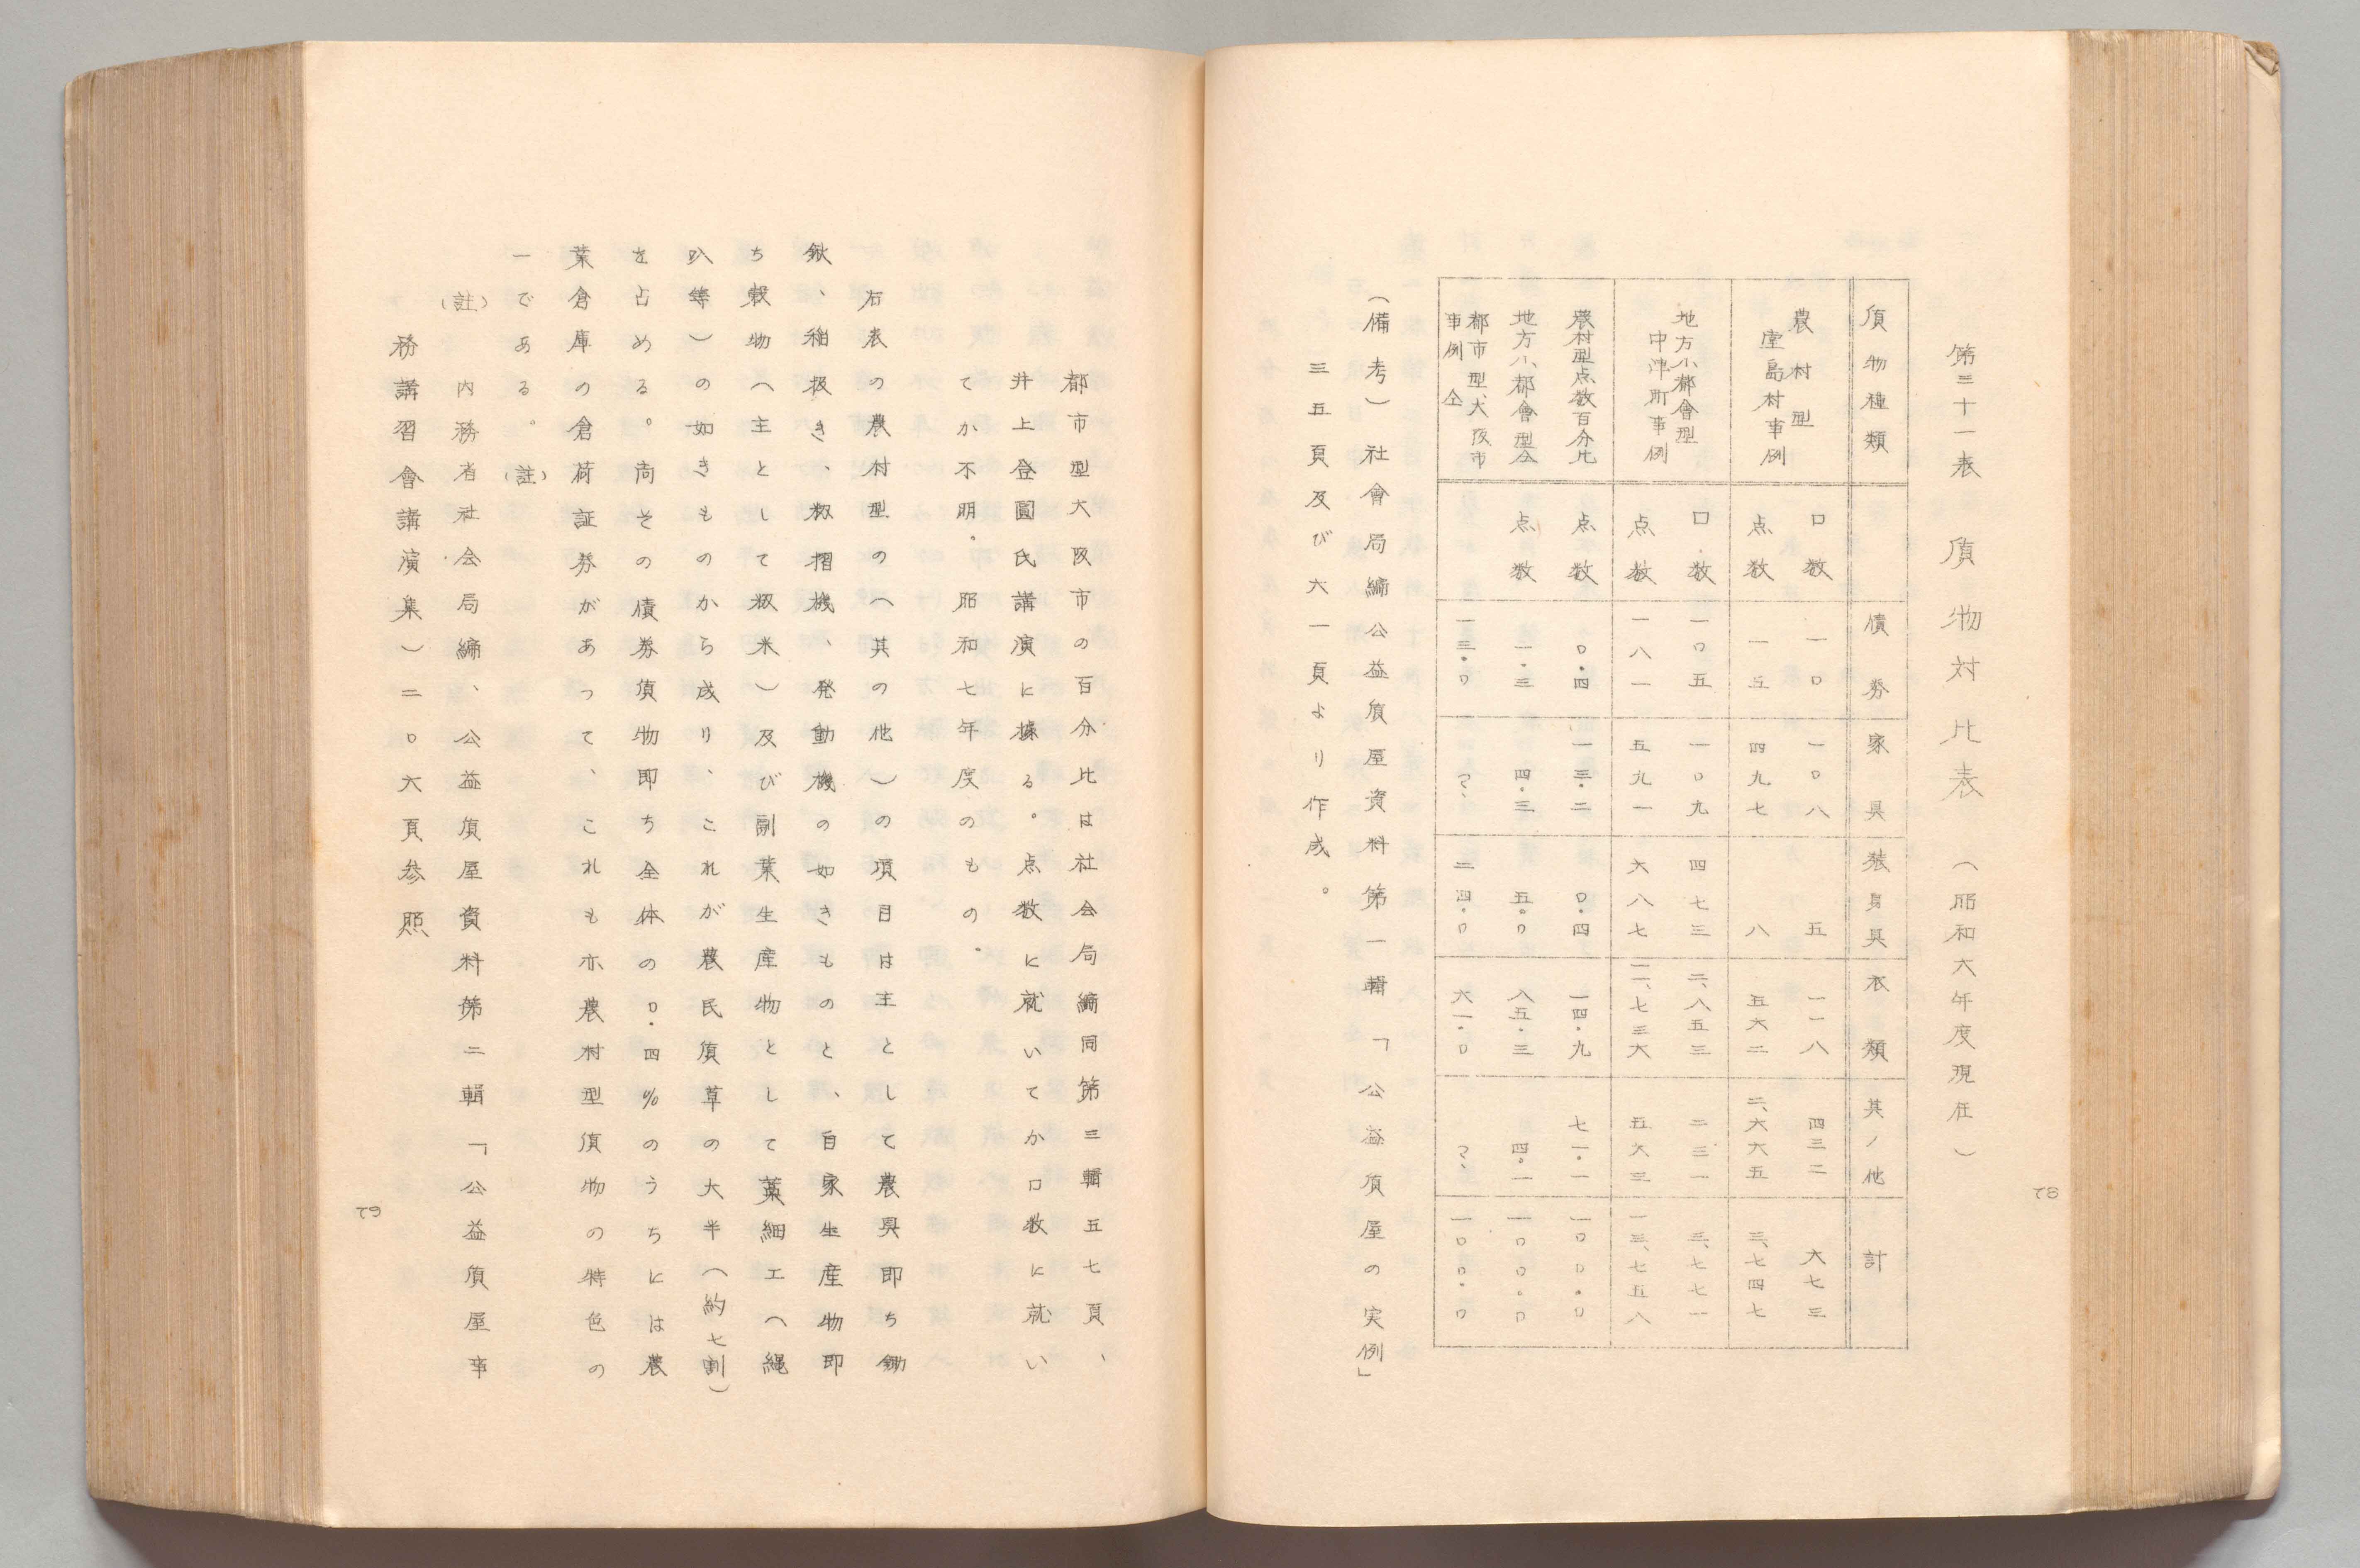 第三十一表　質物対比表　（昭和六年度現在）
質物種類　債券　家具　装身具　衣類　其ノ他　計
農村型
堂島村事例
口数　一〇　一〇八　五　一一八　四三二　六七三
点数　一五　四九七　八　五六二　二、六六五　三、七四七
地方小都會型
中津町事例
口数　一〇五　一〇九　四七三　二、八五三　二三一　三、七七一
点数　一八一　五九一　六八七　一一、七三六　五六三　一三、七五八
農村型点数百分比　点数　〇・四　一三・二　〇・四　一四・九　七一・一　一〇〇・〇
地方小都會型仝　点数　一・三　四・三　五・〇　八五・三　四・一　一〇〇・〇
都市型、大阪市
事例　仝　一三・〇　？　二四・〇　六一・〇　？　一〇〇・〇
（備考）社會局編公益質屋資料第一輯「公益質屋の実例」
三五頁及び六一頁より作成。
78
都市型大阪市の百分比は社会局編同第三輯五七頁、
井上登圓氏講演に據る。点数に就いてか口数に就い
てか不明。昭和七年度のもの。
右表の農村型の（其の他）の項目は主として農具即ち鋤
鍬、稲扱き、籾摺機、発動機の如きものと、自家生産物即
ち穀物（主として籾米）及び副業生産物として藁細工（縄
叺等）の如きものから成り、これが農民質草の大半（約七割）
を占める。尚その債券質物即ち全体の〇・四％のうちには農
業倉庫の倉荷証券があって、これも亦農村型質物の特色の
一である。（註）
（註）内務省社会局編、公益質屋資料第二輯「公益質屋事
務講習會講演集）二〇六頁参照
79